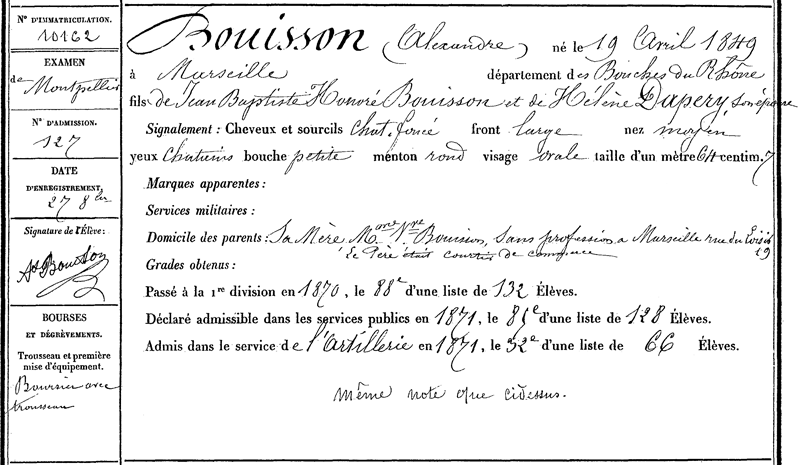 N° D'IMMATRICULATION.
10162
EXAMEN
de Montpellier
N° D'ADMISSION.
127
DATE
D'ENREGISTREMENT,
27 8bre
Signature de l'Élève:
Ad Bouisson
BOURSES
ET DÉGRÈVEMENTS.
Trousseau et première
mise d'équipement.
Boursier avec
trousseau
Bouisson (Alexandre) né le 19 Avril 1849
à Marseille département des Bouches du Rhône
fils de Jean Baptiste Honoré Bouisson et de Hélène Dapery, son épouse
Signalement : Cheveux et sourcils chat. foncé front large nez moyen
yeux chatains bouche petite menton rond visage ovale taille d'un mètre 64 centim. 7
Marques apparentes :
Services militaires :
Domicile des parents : Sa Mère Mme Vve Bouisson, sans profession a Marseille rue du 19
Le Père était courtier de commerce
Grades obtenus :
Passé à la 1re division en 1870, le 88e d'une liste de 132 Élèves.
Déclaré admissible dans les services publics en 1871, le 81e d'une liste de 128 Élèves.
Admis dans le service de l'Artillerie en 1871, le 32e d'une liste de 66 Élèves.
même note que cidessus.